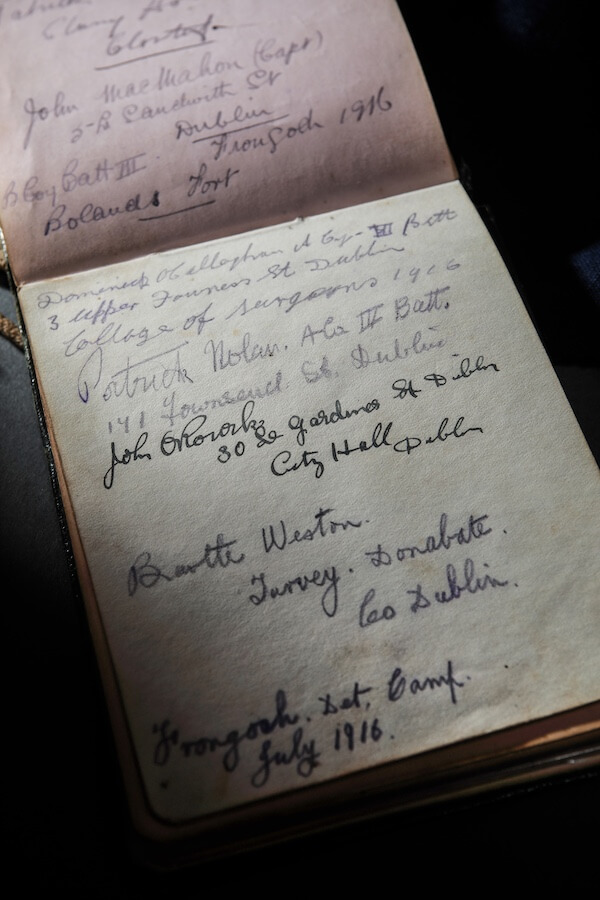 Patrick
Clery
John MacMahon (Capt)
2-B Sandwith St
Dublin
Frongoch 1916
B Coy Batt III.
Bolands Fort
Dominick O'Callaghan A Coy- III Batt
3 Upper Fownes St Dublin
College of Surgeons 1916
Patrick Nolan. IV Batt.
141 Townsend St. Dublin
John O'Rourke
30 Gardiner St Dublin
City Hall Dublin
Weston.
Turvey. Donabate.
Co Dublin.
Frongoch. Det. Camp.
July 1916.